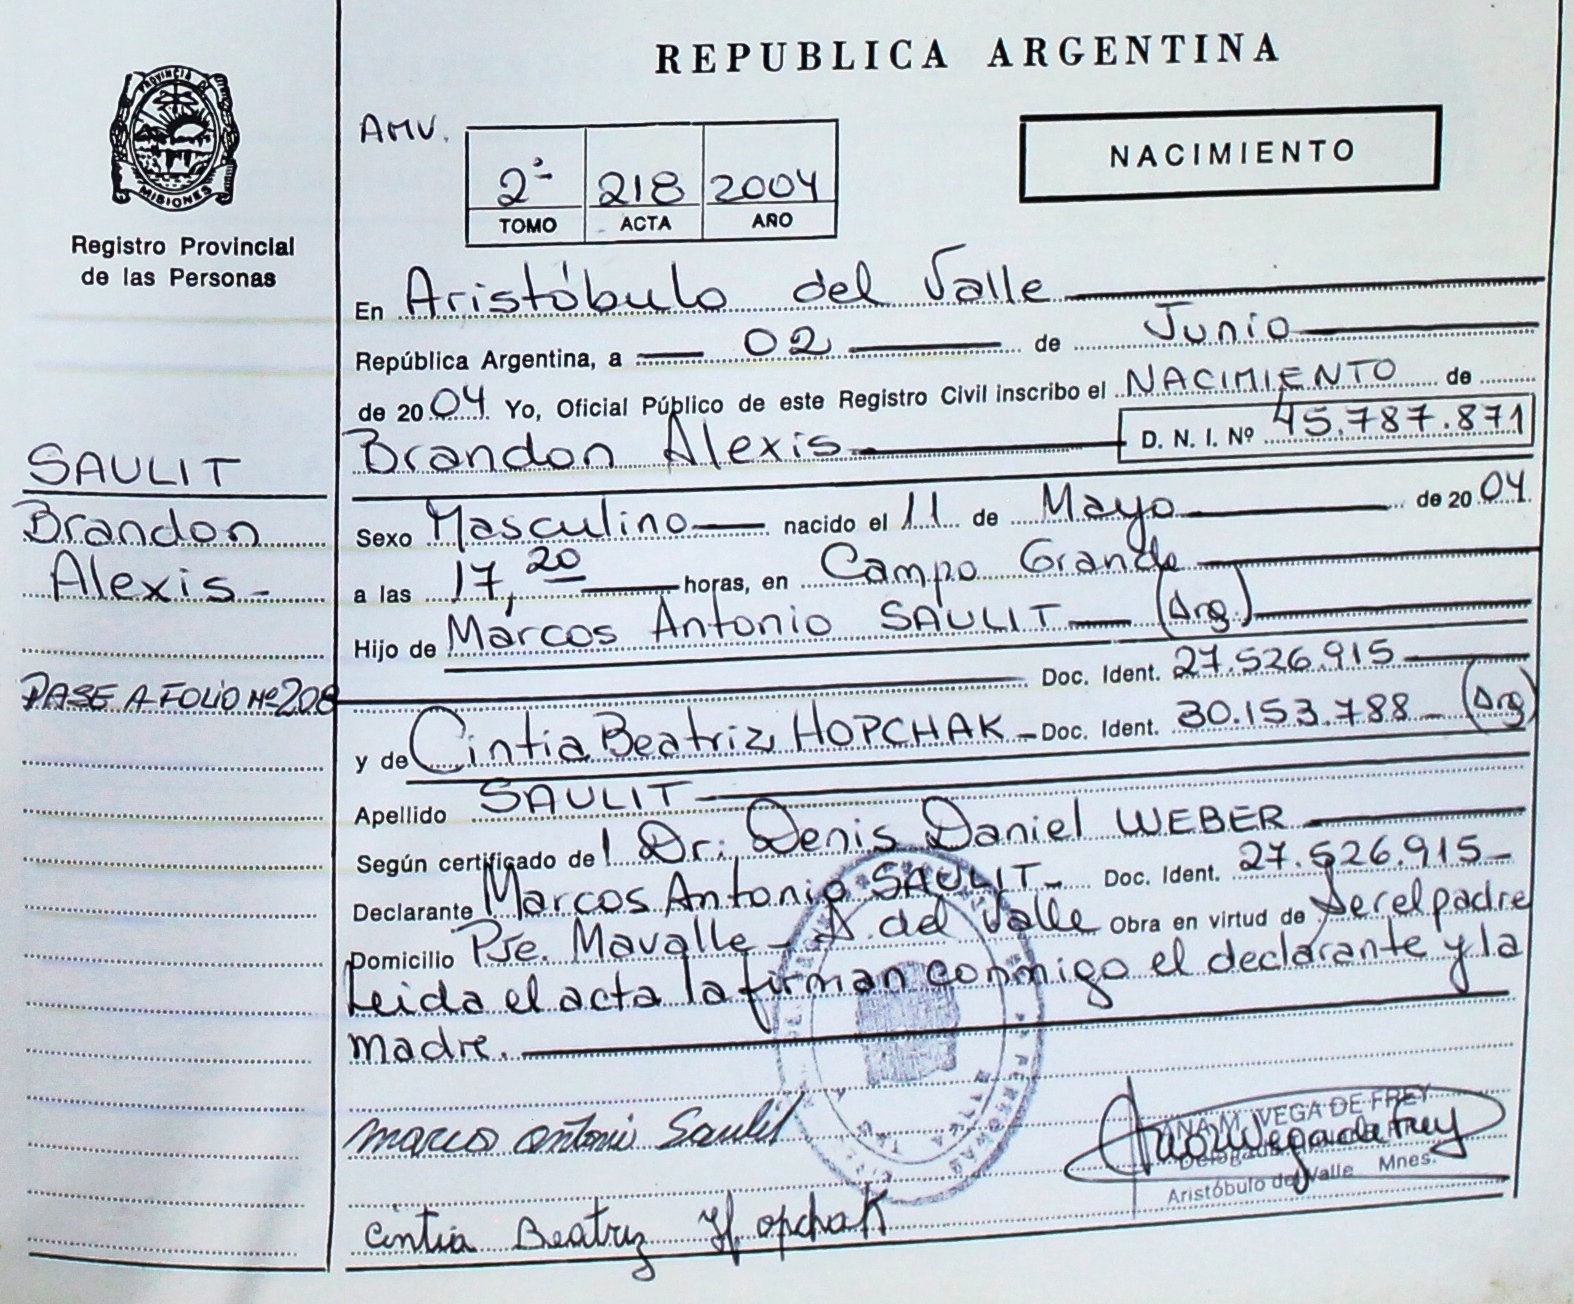 REPUBLICA ARGENTINA
PROVINCIA DE
MISIONES
Registro Provincial
de las Personas
AMV.
2º 218 2004
TOMO ACTA AÑO
NACIMIENTO
En Aristóbulo del Valle
República Argentina, a 02 de Junio
de 2004 Yo, Oficial Público de este Registro Civil inscribo el NACIMIENTO de
Brandon Alexis D. N. I. Nº 45.787.871
SAULIT
Brandon
Alexis-
PASE A FOLIO Nº 208
Sexo Masculino nacido el 11 de Mayo de 2004
a las 17,20 horas, en Campo Grande
Hijo de Marcos Antonio SAULIT (Arg.)
Doc. Ident. 27.526.915
y de Cintia Beatriz HOPCHAK - Doc. Ident. 30.153.788 - (Arg)
Apellido SAULIT
Según certificado del Dr. Denis Daniel WEBER
Declarante Marcos Antonio SAULIT - Doc. Ident. 27.526.915 -
Domicilio Pje. Mavalle - A. del Valle Obra en virtud de Ser el padre
Leida el acta la firman conmigo el declarante y la
madre.
Marco Antonio Saulit
ANA M. VEGA DE FREY
Aristóbulo del Valle Mnes.
Cintia Beatriz Hopchak